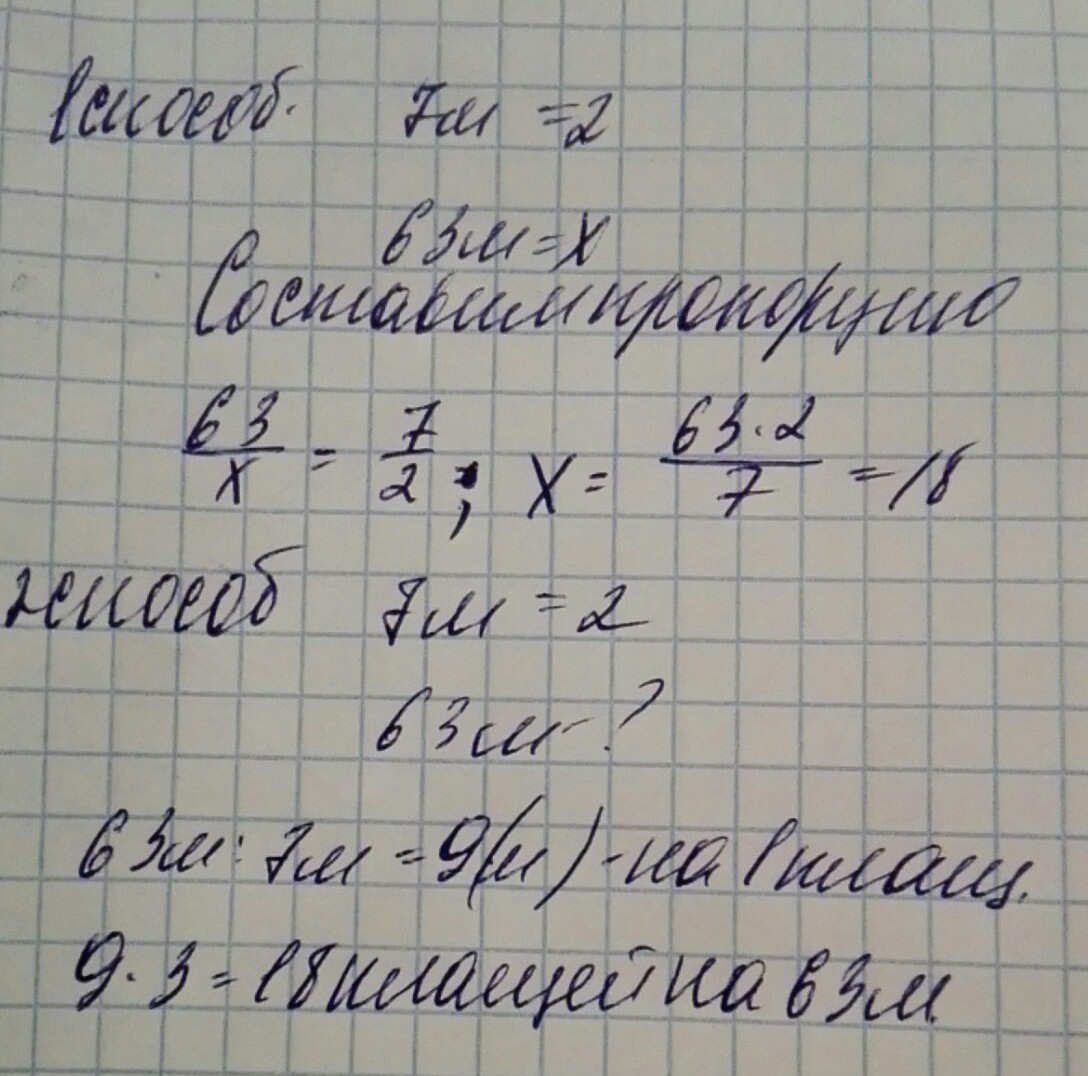 1 способ. 7м = 2
63м = х
Составим пропорцию
63/х = 7/2 ; х = 63·2/7 = 18
2 способ 7м = 2
63м - ?
63м : 7м = 9(м) - на 1 плащ.
9·3 = 18 плащей на 63м.